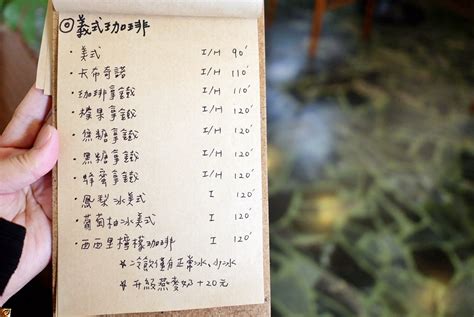 ◎義式珈琲
・美式 I/H 90'
・卡布奇諾 I/H 110'
・珈琲拿鐵 I/H 110'
・榛果拿鐵 I/H 120'
・焦糖拿鐵 I/H 120'
・黑糖拿鐵 I/H 120'
・蜂蜜拿鐵 I/H 120'
・鳳梨冰美式 I 120'
・葡萄柚冰美式 I 120'
・西西里檸檬珈琲 I 120'
※冷飲僅有正常冰、少冰
※升級燕麥奶+20元